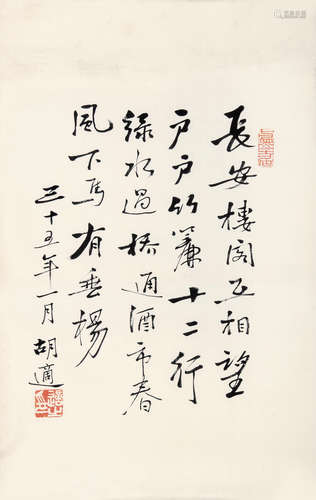 長安樓閣互相望
戶戶竹簾十二行
綠水過橋通酒市春
風下馬有垂楊
三十五年一月胡適